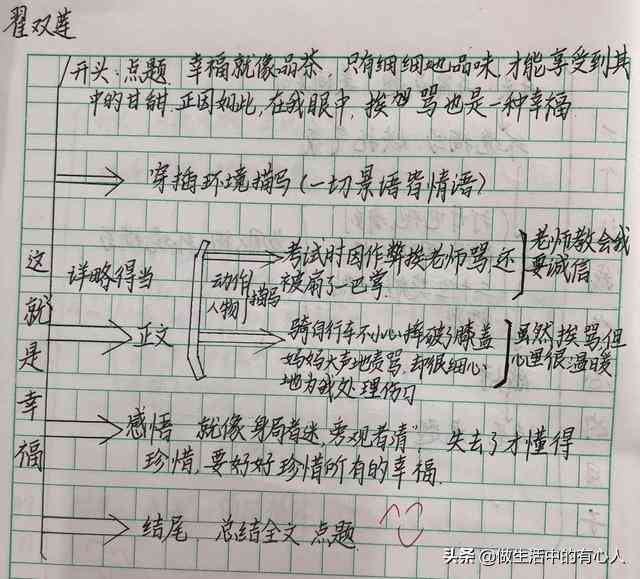 翟双莲
开头:点题. 幸福就像品茶, 只有细细地品味, 才能享受到其
中的甘甜. 正因如此, 在我眼中, 挨 骂也是一种幸福.
穿插环境描写(一切景语皆情语)
这就是幸福
详略得当
正文
动作
人物
描写
考试时因作弊挨老师骂, 还
被扇了一巴掌.
老师教会我
要诚信
骑自行车不小心摔破了膝盖
妈妈大声地责骂, 却很细心
地为我处理伤口
虽然挨骂但
心里很温暖
感悟 就像身局者迷 旁观者清", 失去了才懂得
珍惜, 要好好珍惜所有的幸福.
结尾, 总结全文 点题.
头条 @做生活中的有心人